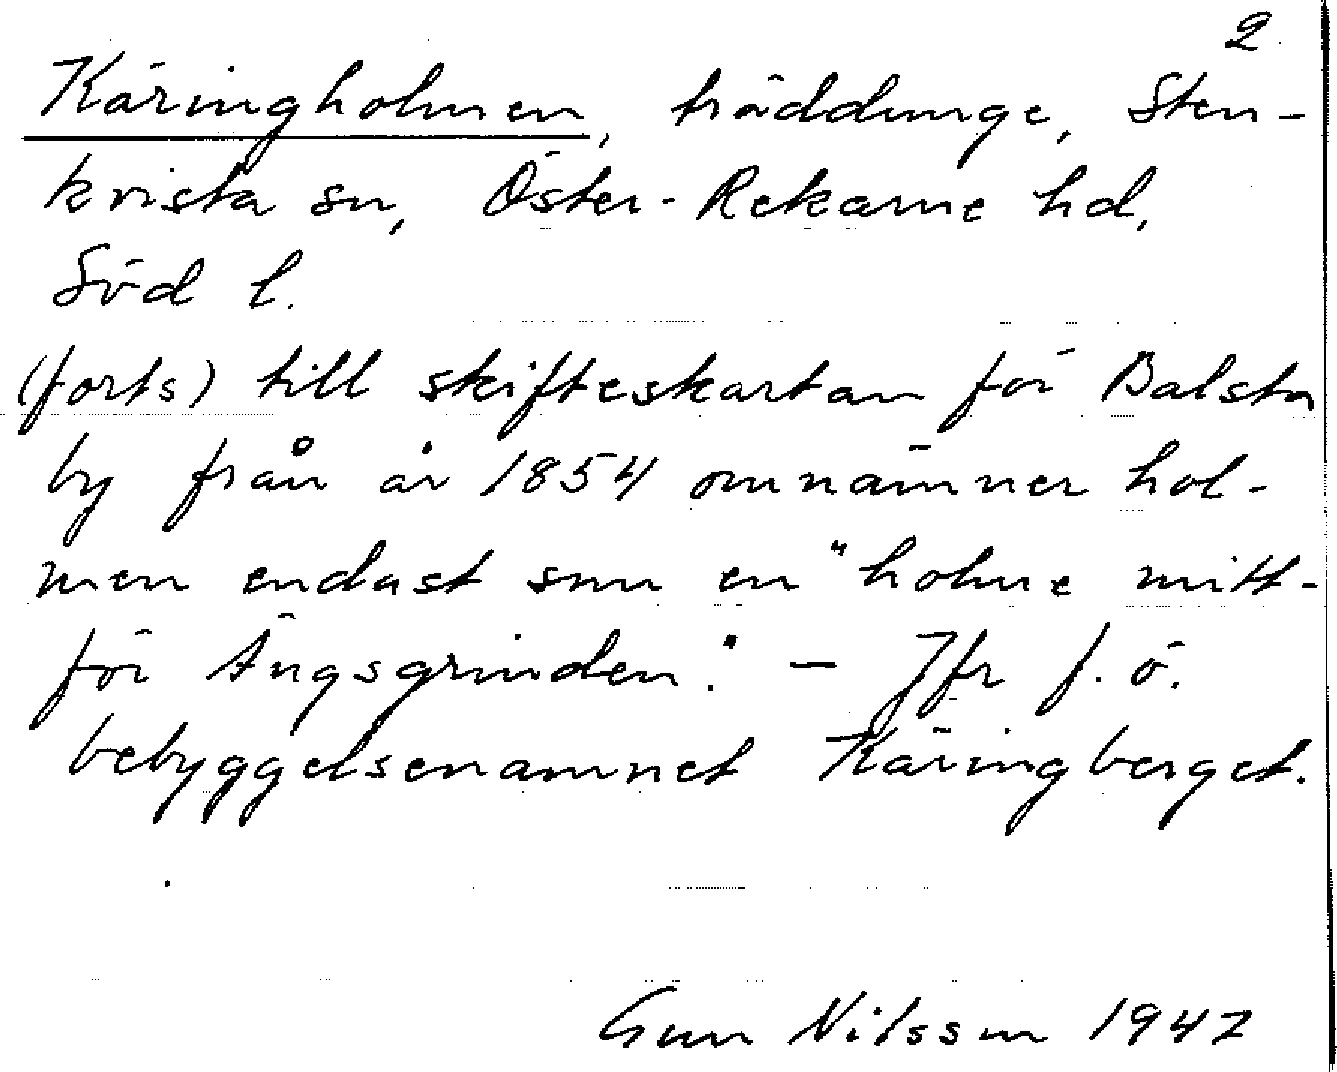 2
Käringholmen, träddunge, Sten-
kvista sn, Öster-Rekarne hd,
Söd l.
(forts) till skifteskartan för Balsta
by från år 1854 omnämner hol-
men endast som en "holme mitt-
för Ängsgrinden." - Jfr f. ö.
bebyggelsenamnet Käringberget.
Gun Nilsson 1947